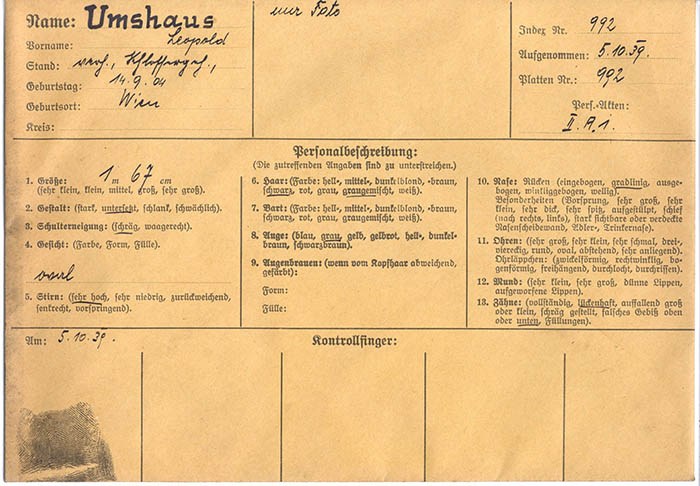 Name: Umshaus
Vorname: Leopold
Stand: verh., Schlossergeh.,
Geburtstag: 14.9.04
Geburtsort: Wien
Kreis:
nur Foto
Index Nr. 992
Aufgenommen: 5.10.39.
Platten Nr.: 992
Pers.-Akten:
II. A. 1.
Personalbeschreibung:
(Die zutreffenden Angaben sind zu unterstreichen.)
1. Größe: 1 m 67 cm
(sehr klein, klein, mittel, groß, sehr groß).
2. Gestalt: (stark, untersetzt, schlank, schwächlich).
3. Schulterneigung: (schräg, waagerecht).
4. Gesicht: (Farbe, Form, Fülle).
oval
5. Stirn: (sehr hoch, sehr niedrig, zurückweichend,
senkrecht, vorspringend).
6. Haar: (Farbe: hell-, mittel-, dunkelblond, -braun,
schwarz, rot, grau, graugemischt, weiß).
7. Bart: (Farbe: hell-, mittel-, dunkelblond, -braun,
schwarz, rot, grau, graugemischt, weiß).
8. Auge: (blau, grau, gelb, gelbrot, hell-, dunkel-
braun, schwarzbraun).
9. Augenbrauen: (wenn vom Kopfhaar abweichend,
gefärbt):
Form:
Fülle:
10. Nase: Rücken (eingebogen, gradlinig, ausge-
bogen, winkliggebogen, wellig).
Besonderheiten (Vorsprung, sehr groß, sehr
klein, sehr dick, sehr spitz, aufgestülpt, schief
(nach rechts, links), stark sichtbare oder verdeckte
Nasenscheidewand, Adler-, Trinkernase).
11. Ohren: (sehr groß, sehr klein, sehr schmal, drei-
viereckig, rund, oval, abstehend, sehr anliegend).
Ohrläppchen: (zwickelförmig, rechtwinklig, bo-
genförmig, freihängend, durchlocht, durchrissen).
12. Mund: (sehr klein, sehr groß, dünne Lippen,
aufgeworfene Lippen).
13. Zähne: (vollständig, lückenhaft, auffallend groß
oder klein, schräg gestellt, falsches Gebiß oben
oder unten, Füllungen).
Am: 5.10.39.
Kontrollfinger: